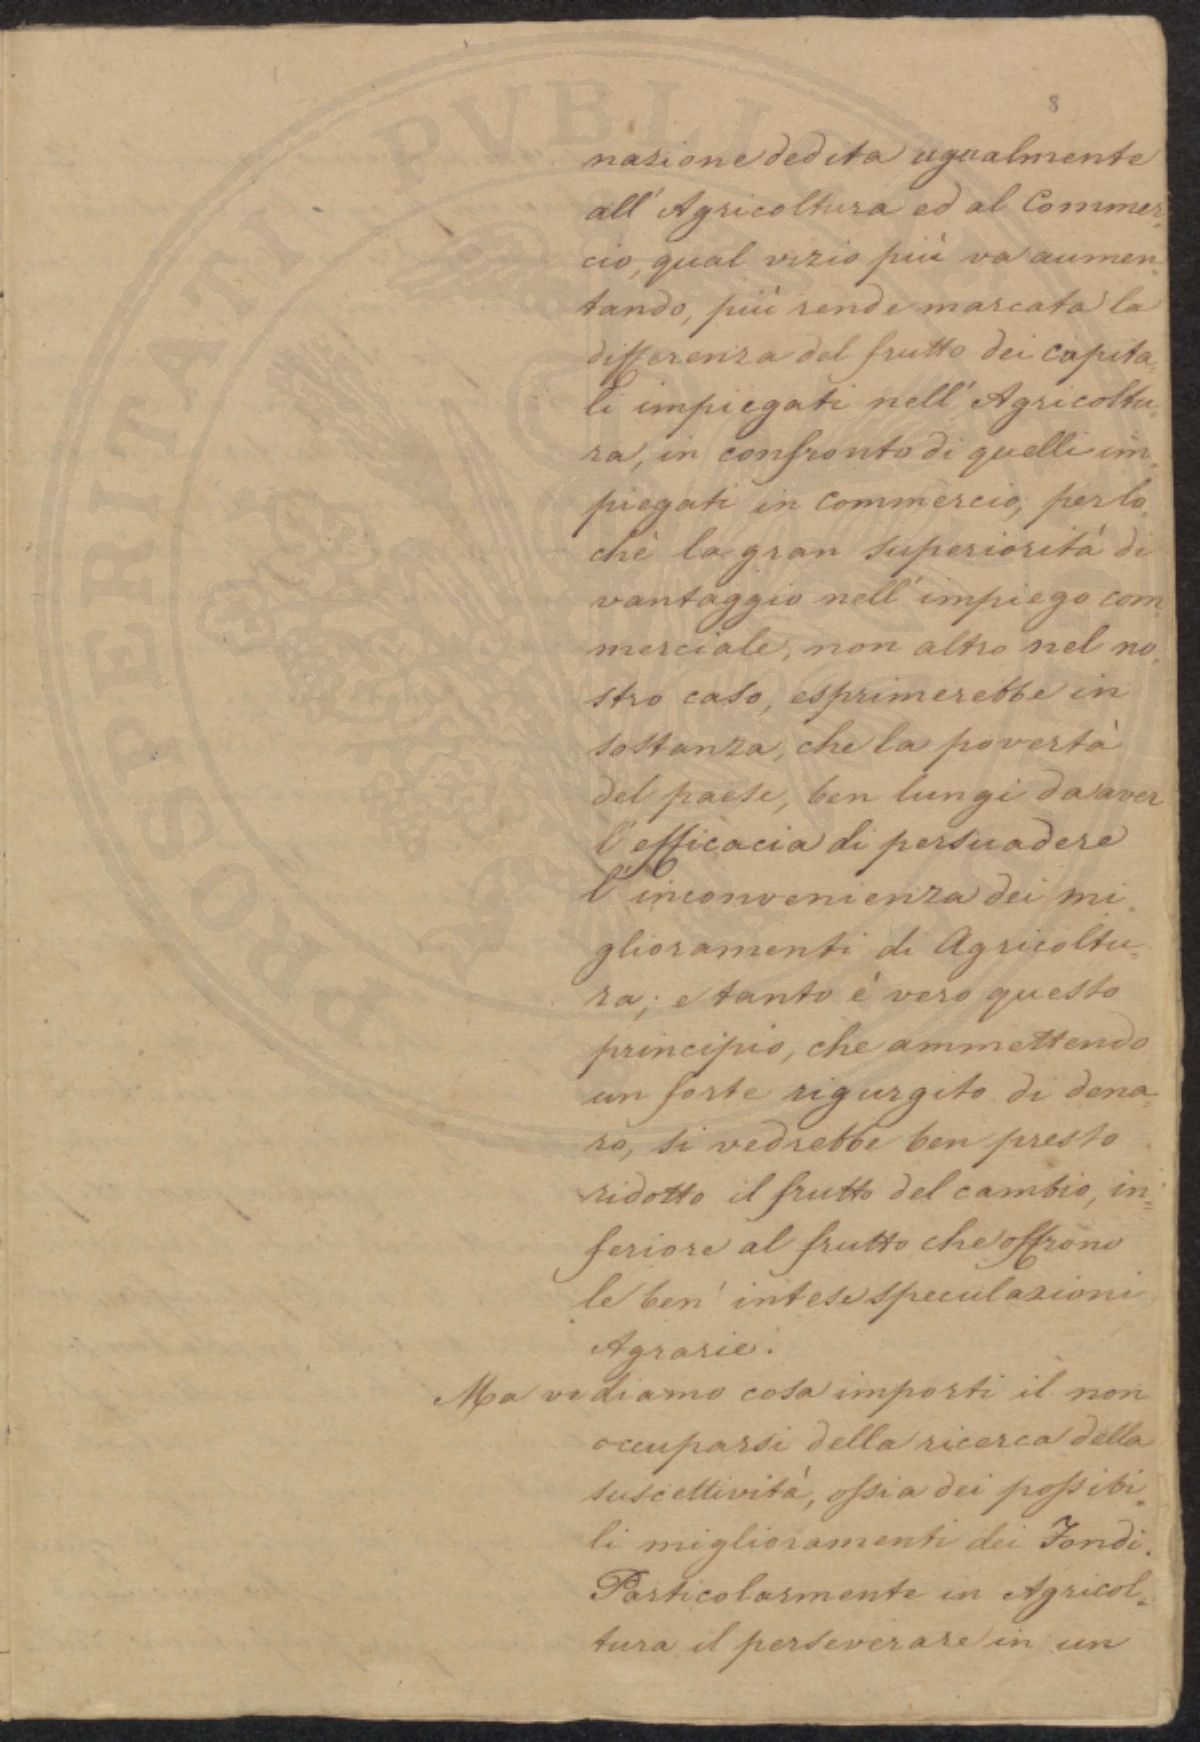 8
nazione dedita ugualmente
all'Agricoltura ed al Commer=
cio, qual vizio più va aumen=
tando, più rende marcata la
differenza del frutto dei capita=
li impiegati nell'Agricoltu=
ra, in confronto di quelli im=
piegati in commercio; perlo=
chè la gran superiorità di
vantaggio nell'impiego com=
merciale, non altro nel no=
stro caso, esprimerebbe in
sostanza, che la povertà
del paese, ben lungi da aver
l'efficacia di persuadere
l'inconvenienza dei mi=
glioramenti di Agricoltu=
ra; e tanto è vero questo
principio, che ammettendo
un forte rigurgito di dena=
ro, si vedrebbe ben presto
ridotto il frutto del cambio, in=
feriore al frutto che offrono
le ben' intese speculazioni
Agrarie.
Ma vediamo cosa importi il non
occuparsi della ricerca della
suscettività, ossia dei possibi=
li miglioramenti dei Fondi.
Particolarmente in Agricol=
tura il perseverare in un
PROSPERITATI PVBLIC